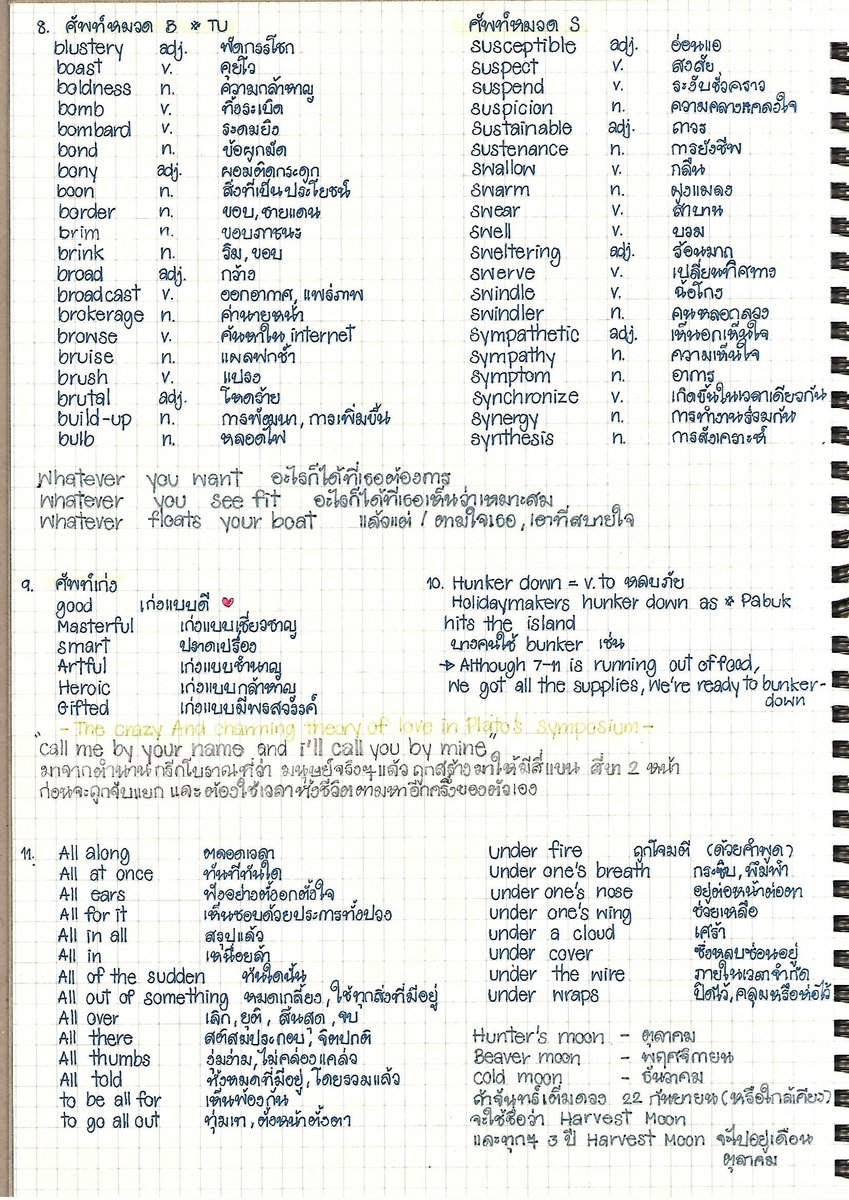 8. ศัพท์หมวด B * TU
blustery adj. พัดกรรโชก
boast v. คุยโว
boldness n. ความกล้าหาญ
bomb v. ทิ้งระเบิด
bombard v. ระดมยิง
bond n. ข้อผูกมัด
bony adj. ผอมติดกระดูก
boon n. สิ่งที่เป็นประโยชน์
border n. ขอบ, ชายแดน
brim n. ขอบภาชนะ
brink n. ริม, ขอบ
broad adj. กว้าง
broadcast v. ออกอากาศ, แพร่ภาพ
brokerage n. ค่านายหน้า
browse v. ค้นหาใน internet
bruise n. แผลฟกช้ำ
brush v. แปรง
brutal adj. โหดร้าย
build-up n. การพัฒนา, การเพิ่มขึ้น
bulb n. หลอดไฟ
ศัพท์หมวด S
susceptible adj. อ่อนแอ
suspect v. สงสัย
suspend v. ระงับชั่วคราว
suspicion n. ความคลางแคลงใจ
Sustainable adj. ถาวร
sustenance n. การยังชีพ
swallow v. กลืน
swarm n. ฝูงแมลง
swear v. สาบาน
swell v. บวม
sweltering adj. ร้อนมาก
swerve v. เปลี่ยนทิศทาง
swindle v. ฉ้อโกง
swindler n. คนหลอกลวง
sympathetic adj. เห็นอกเห็นใจ
sympathy n. ความเห็นใจ
symptom n. อาการ
synchronize v. เกิดขึ้นในเวลาเดียวกัน
synergy n. การทำงานร่วมกัน
synthesis n. การสังเคราะห์
Whatever you want อะไรก็ได้ที่เธอต้องการ
Whatever you see fit อะไรก็ได้ที่เธอเห็นว่าเหมาะสม
Whatever floats your boat แล้วแต่ / ตามใจเธอ, เอาที่สบายใจ
9. ศัพท์เก่ง
good เก่งแบบดี ♥
Masterful เก่งแบบเชี่ยวชาญ
smart ปลาดเปรื่อง
Artful เก่งแบบชำนาญ
Heroic เก่งแบบกล้าหาญ
Gifted เก่งแบบมีพรสวรรค์
10. Hunker down = v. to หลบภัย
Holidaymakers hunker down as * Pabuk
hits the island
บางคนใช้ bunker เช่น
→ Although 7-11 is running out of food,
we got all the supplies, we're ready to bunker-
down
- The crazy And charming theory of love in Plato's Symposium -
"call me by your name and i'll call you by mine"
มาจากตำนานกรีกโบราณที่ว่า มนุษย์จริงๆแล้ว ถูกสร้างมาให้มีสี่แขน สี่ขา 2 หน้า
ก่อนจะถูกจับแยก และต้องใช้เวลาทั้งชีวิตตามหาอีกครึ่งของตัวเอง
11. All along ตลอดเวลา
All at once ทันทีทันใด
All ears ฟังอย่างตั้งอกตั้งใจ
All for it เห็นชอบด้วยประการทั้งปวง
All in all สรุปแล้ว
All in เหนื่อยล้า
All of the sudden ทันใดนั้น
All out of something หมดเกลี้ยง, ใช้ทุกสิ่งที่มีอยู่
All over เลิก, ยุติ, สิ้นสุด, จบ
All there สติสมประกอบ, จิตปกติ
All thumbs งุ่มง่าม, ไม่คล่องแคล่ว
All told ทั้งหมดที่มีอยู่, โดยรวมแล้ว
to be all for เห็นพ้องกัน
to go all out ทุ่มเท, ตั้งหน้าตั้งตา
under fire ถูกโจมตี (ด้วยคำพูด)
under one's breath กระซิบ, พึมพำ
under one's nose อยู่ต่อหน้าต่อตา
under one's wing ช่วยเหลือ
under a cloud เศร้า
under cover ซึ่งหลบซ่อนอยู่
under the wire ภายในเวลาจำกัด
under wraps ปิดไว้, คลุมหรือห่อไว้
Hunter's moon - ตุลาคม
Beaver moon - พฤศจิกายน
cold moon - ธันวาคม
ถ้าจันทร์เต็มดวง 22 กันยายน (หรือใกล้เคียง)
จะใช้ชื่อว่า Harvest Moon
และทุกๆ 3 ปี Harvest Moon จะไปอยู่เดือน
ตุลาคม